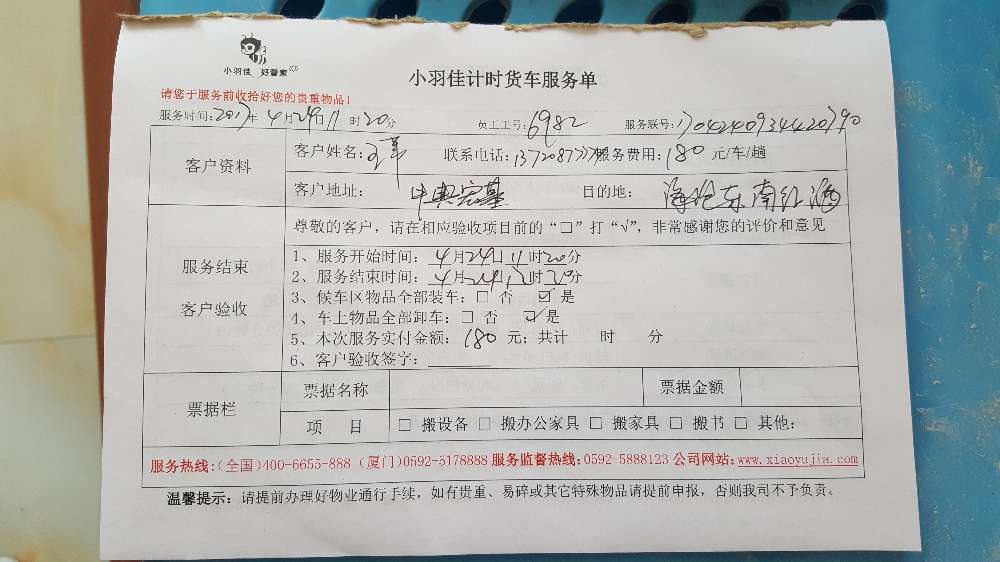 小羽佳 好管家
小羽佳计时货车服务单
请您于服务前收拾好您的贵重物品！
服务时间：2017年 4月24日11时20分 员工工号：6982 服务联号：170424093442090
客户资料 客户姓名： 联系电话：1372087 服务费用：180 元/车/趟
客户地址： 中央 目的地：海沧东南红
尊敬的客户，请在相应验收项目前的“□”打“√”，非常感谢您的评价和意见
服务结束
客户验收
1、服务开始时间：4月24日11时20分
2、服务结束时间：4月24日12时20分
3、候车区物品全部装车：□ 否 ☑ 是
4、车上物品全部卸车：□ 否 ☑ 是
5、本次服务实付金额：180 元；共计 时 分
6、客户验收签字：
票据栏 票据名称 票据金额
项 目 □ 搬设备 □ 搬办公家具 □ 搬家具 □ 搬书 □ 其他：
服务热线：(全国)400-6655-888 (厦门)0592-5178888 服务监督热线：0592-5888123 公司网站：www.xiaoyujia.com
温馨提示：请提前办理好物业通行手续，如有贵重、易碎或其它特殊物品请提前申报，否则我司不予负责。